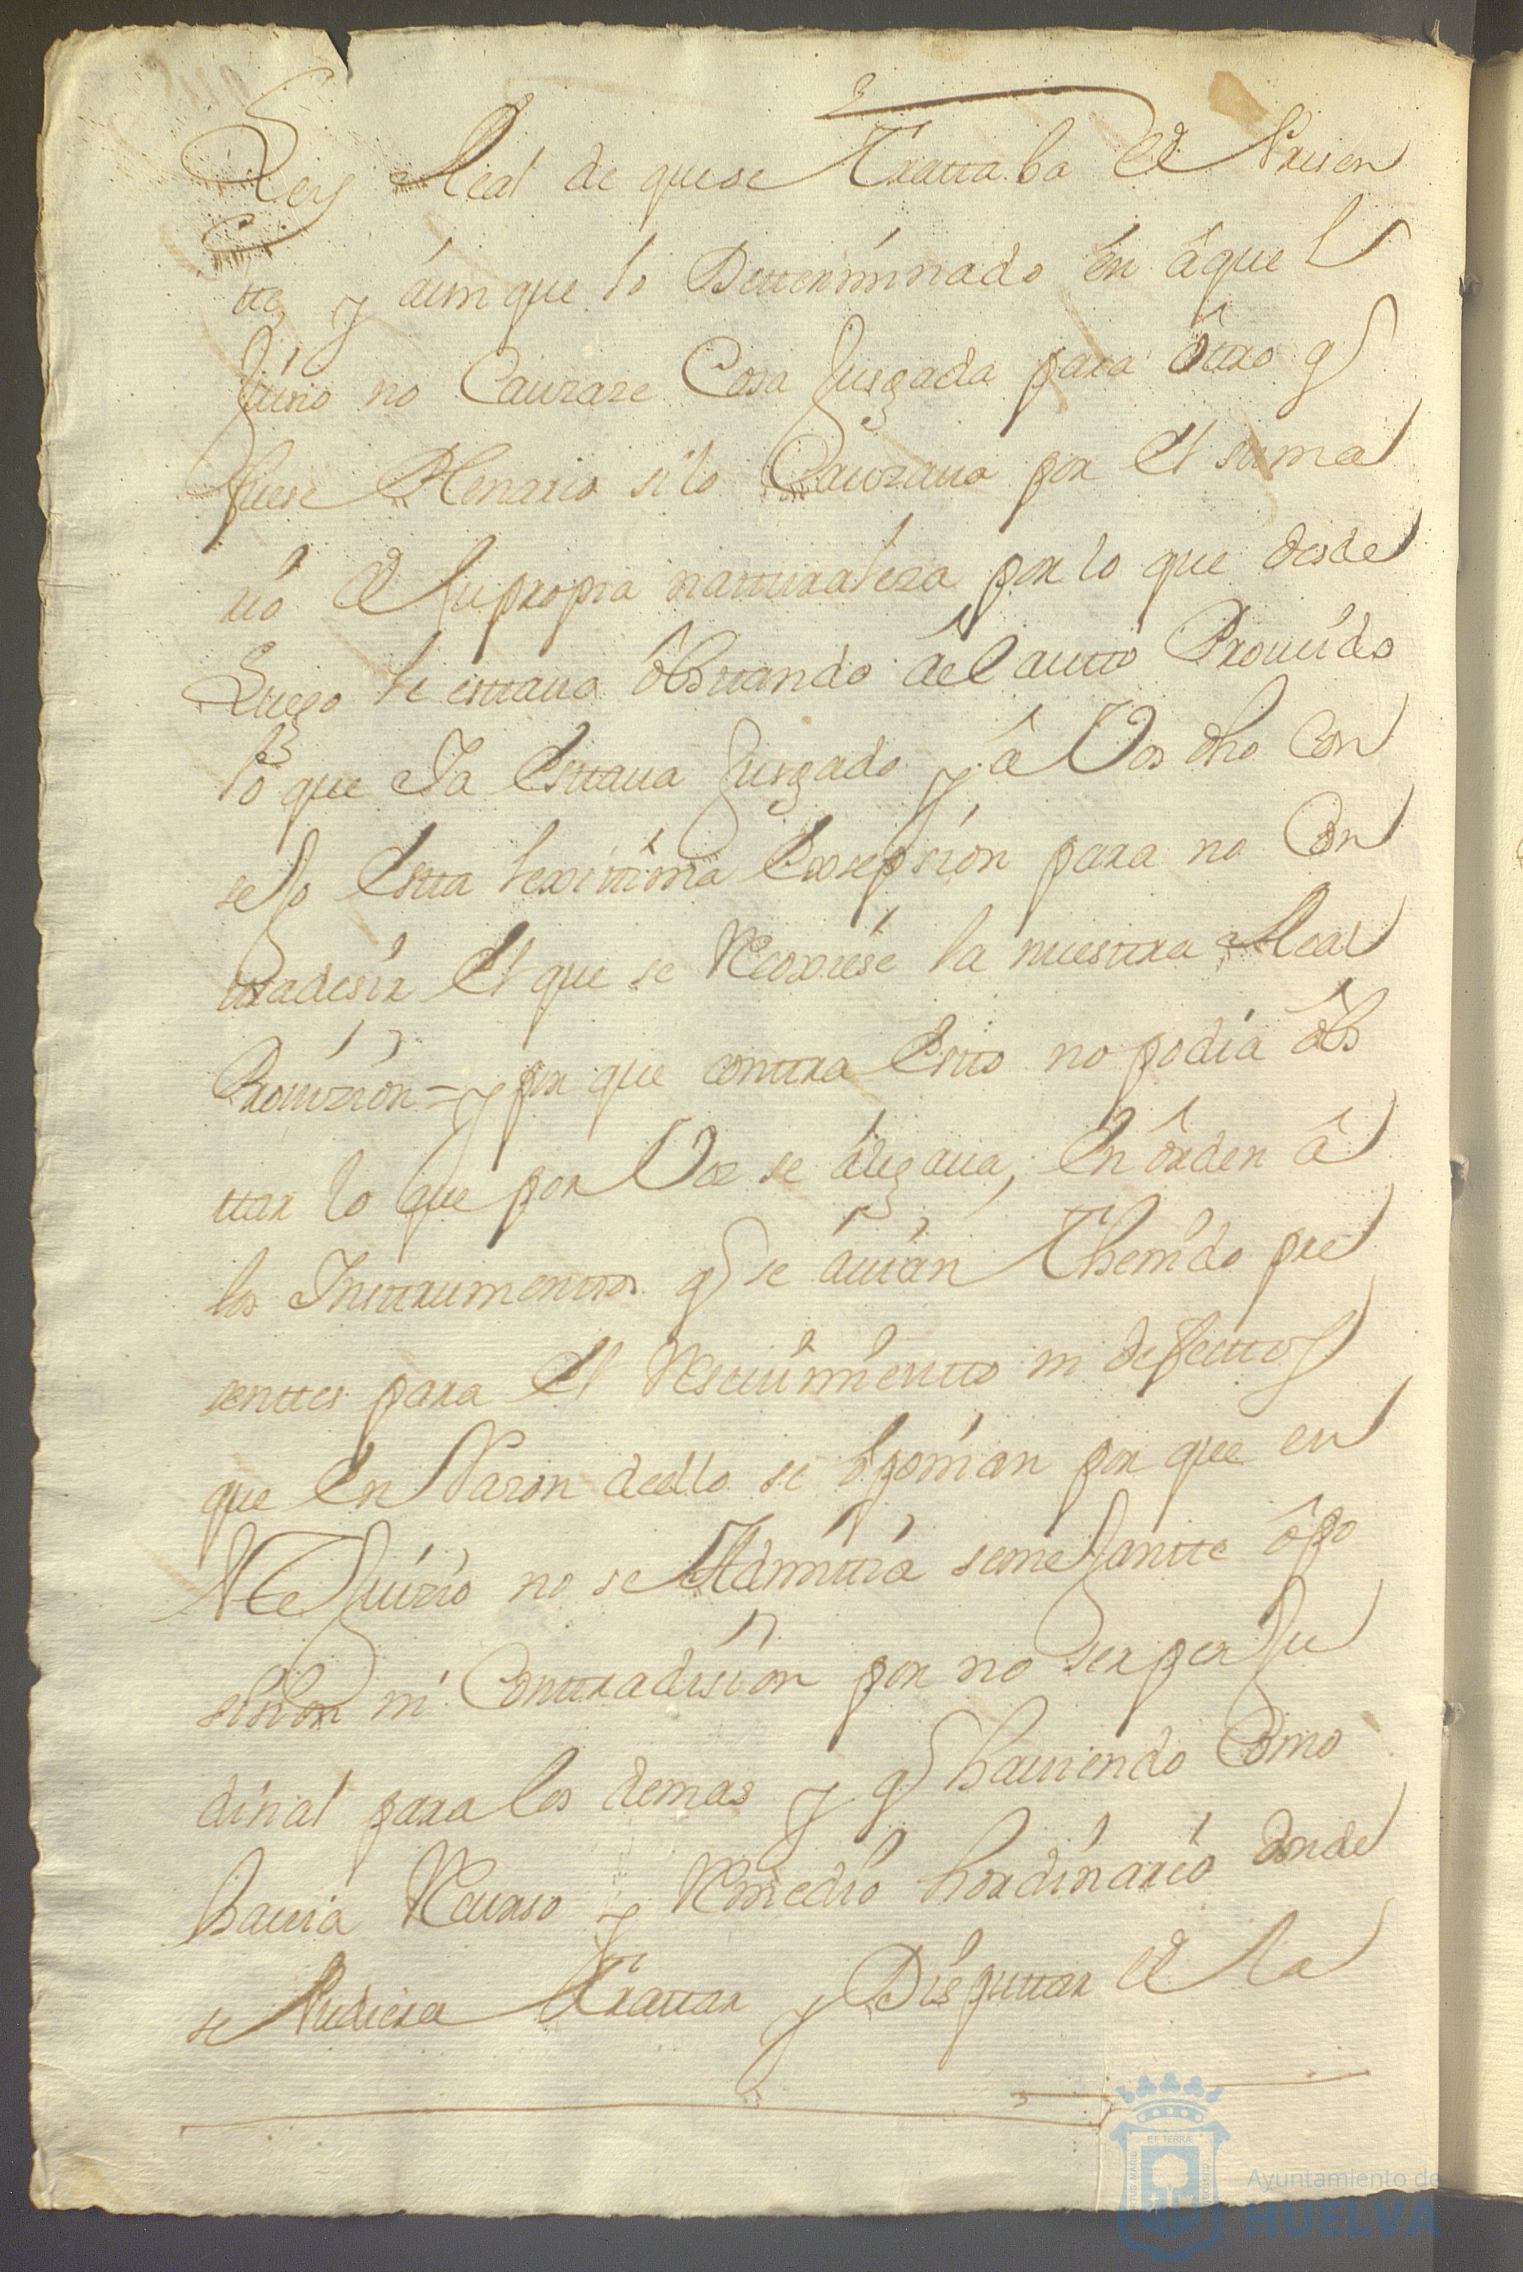 Ley Real de que se Trattaba el Presen
tte, y áunque lo Detterminado en âquel
Juisio no Cauzaze Cosa Juzgada para ôttro q
fuese Plenario si lo Cauzaua por el suma
rio de su propia natturaleza por lo que desde
Luego le esttaua ôbsttando âel autto Proueido
lo que Ia Esttaua Juzgado y â Vos dho Con
sejo Estta lexittima Exsepsion para no Con
ttradesir El que se Recoxiese la nuesttra Real
Prouizion = y por que conttra Estto no podia ôbs
ttar lo que por Vos se âlegaua, En ôrden â
los Insttrumenttos q se âuian Thenido pre
senttes para el Reseuimientto ni defecttos
que En Razon de ello se ôponian por que en
tte Juizio no se Admittia semejantte ôpo
sision ni Conttradision por no ser perju
dizial para los demas y q hauiendo Como
hauia Recurso y Remedio hordinario donde
se Pudiera Trattar y Disputtar de la
ET TERRÆ
Ayuntamiento de
HUELVA